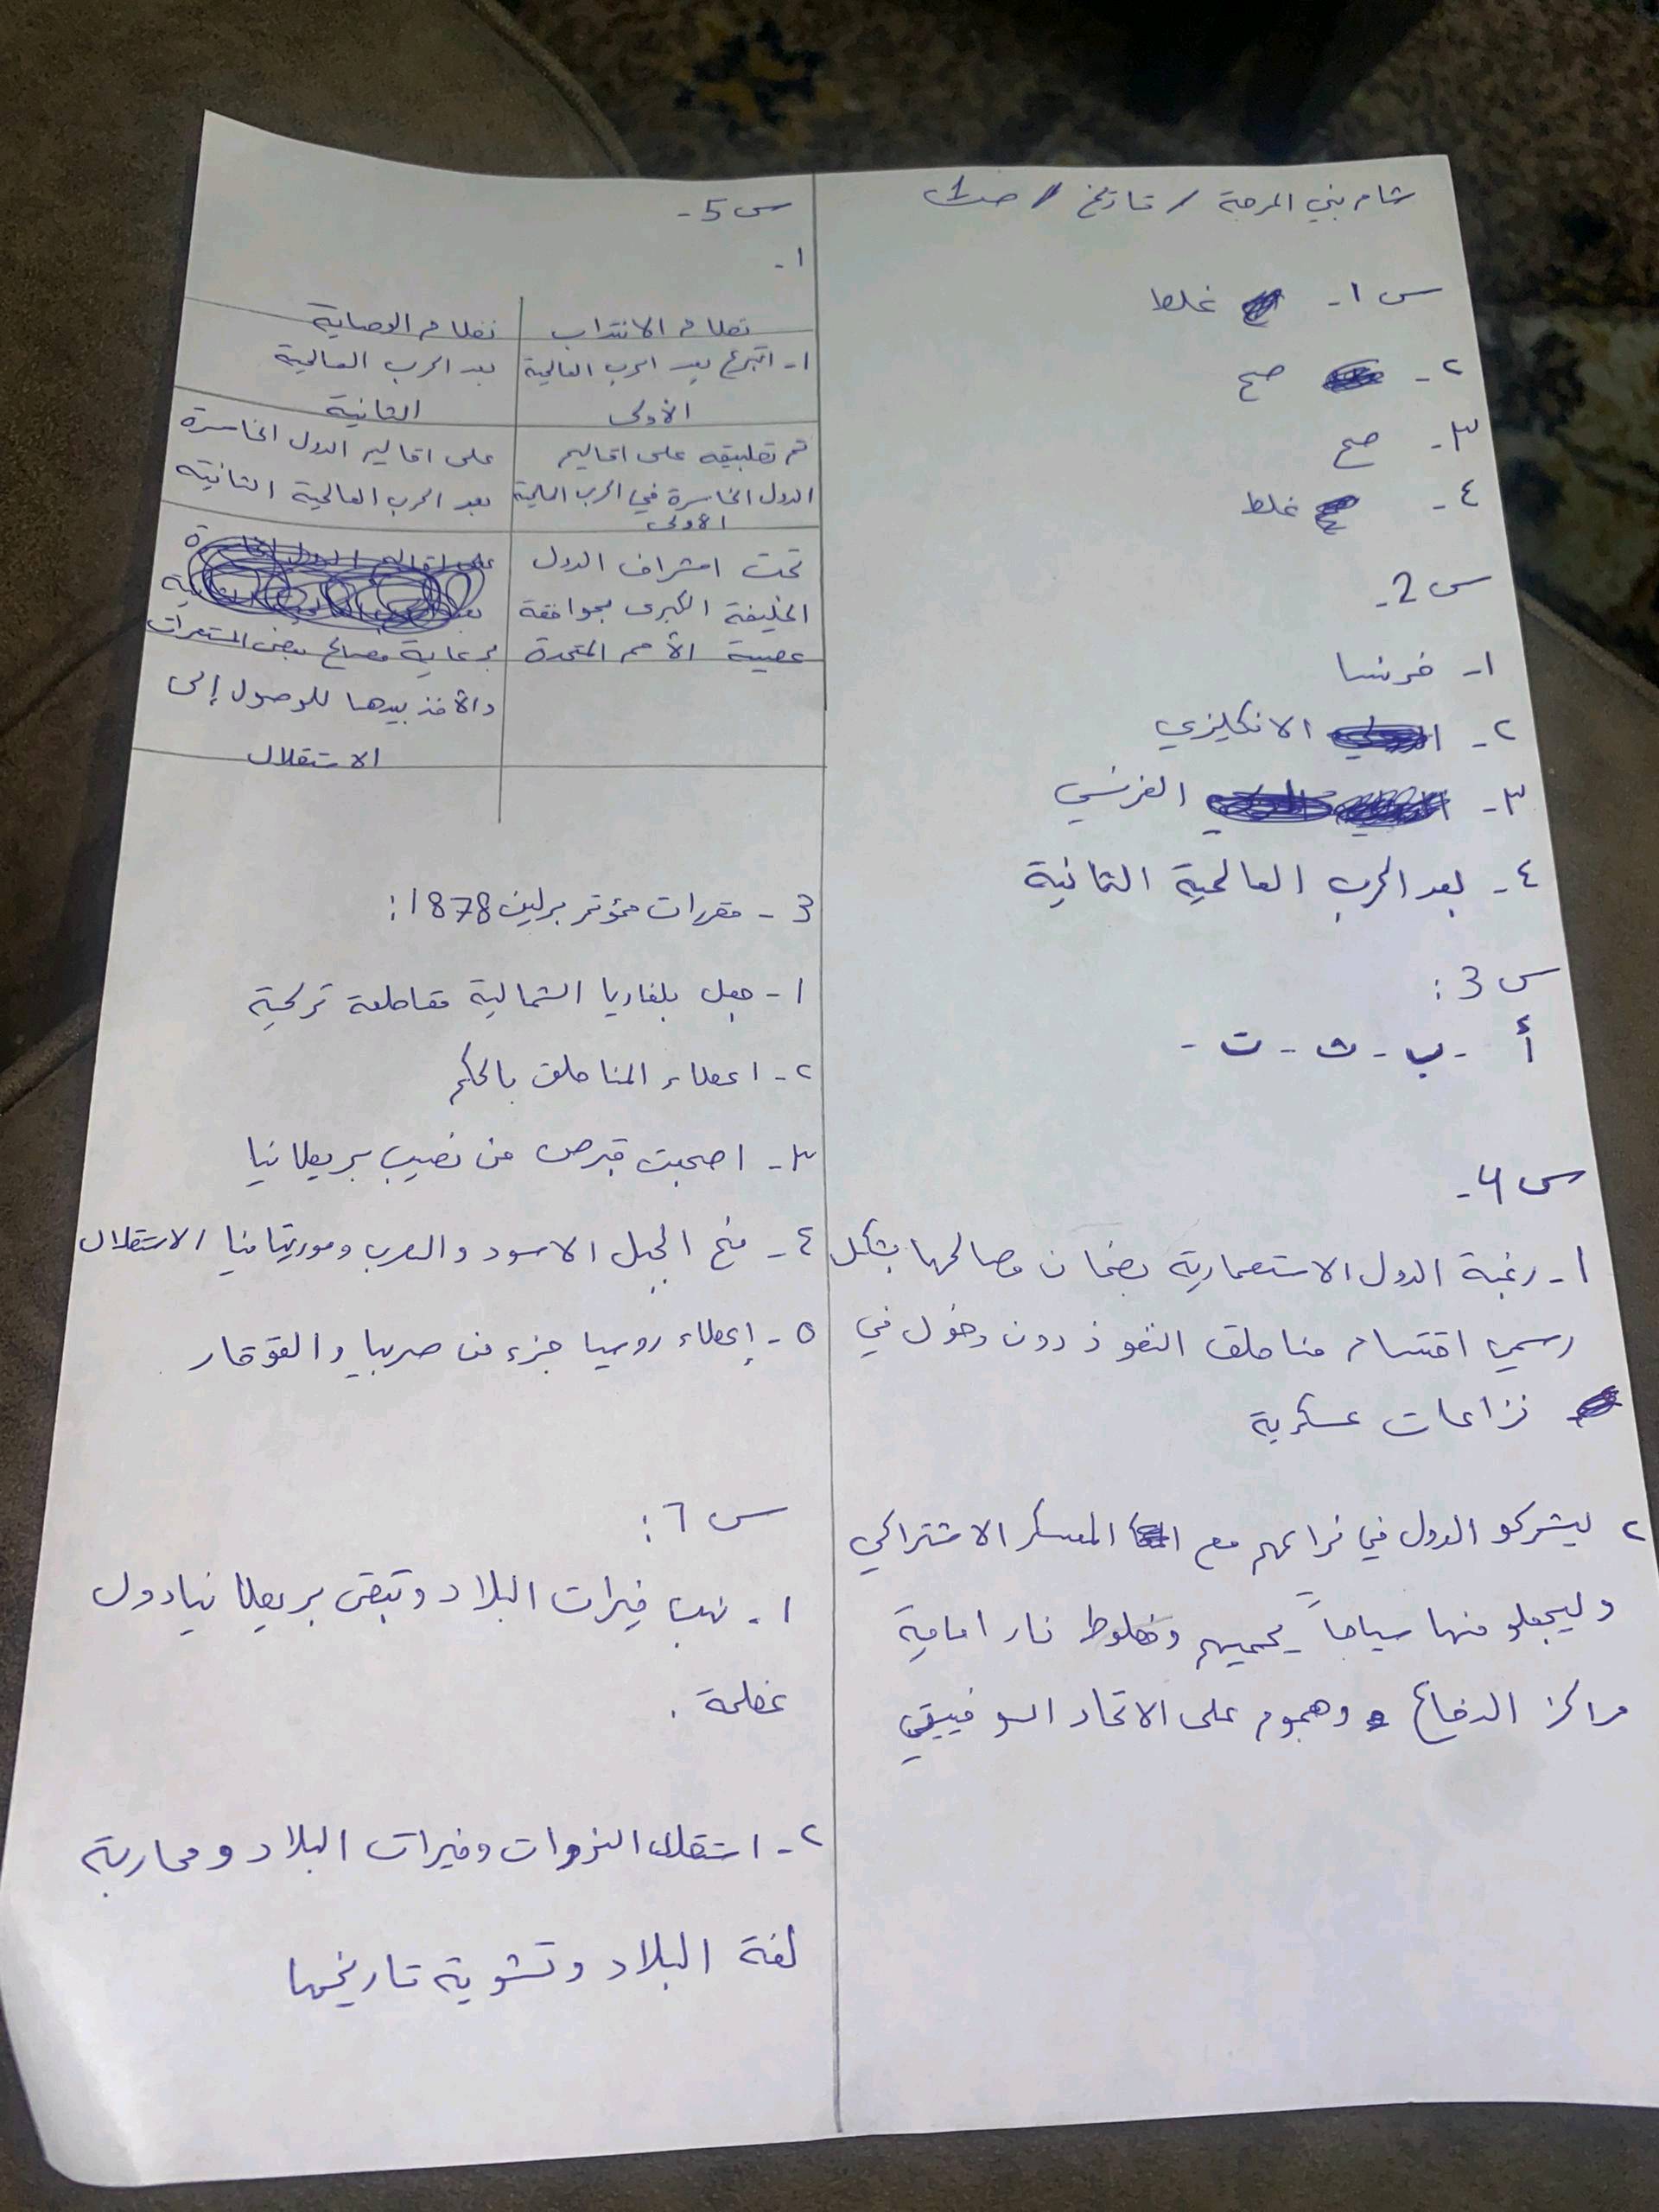 شام بني المرجة / تاريخ / صف 1
س ١- غلط
٢- صح
٣- صح
٤- غلط
س 2-
١- فرنسا
٢- الانكليزي
٣- الفرنسي
٤- بعد الحرب العالمية الثانية
س 3 :
أ - ب - ث - ت -
س 4-
١- رغبة الدول الاستعمارية بضمان مصالحها بشكل
رسمي اقتسام مناطق النفوذ دون دخول في
نزاعات عسكرية
٢ ليشركو الدول في نزاعهم مع المعسكر الاشتراكي
وليجعلو منها سياجاً يحميهم وخطوط نار امامية
مراكز الدفاع وهجوم على الاتحاد السوفييتي
س 5-
١-
نظام الانتداب | نظام الوصاية
١- اتبع بعد الحرب العالمية | بعد الحرب العالمية
الأولى | الثانية
تم تطبيقه على اقاليم | على اقاليم الدول الخاسرة
الدول الخاسرة في الحرب العالمية | بعد الحرب العالمية الثانية
الأولى
تحت اشراف الدول
الحليفة الكبرى بموافقة
عصبة الأمم المتحدة | برعاية مصالح بعض المستعمرات
والأخذ بيدها للوصول إلى
الاستقلال
3- مقررات مؤتمر برلين 1878:
١- جعل بلغاريا الشمالية مقاطعة تركية
٢- اعطاء المناطق بالحكم
٣- اصبحت قبرص من نصيب بريطانيا
٤- منح الجبل الاسود والصرب وموريتانيا الاستقلال
٥- إعطاء روسيا جزء من صربيا والقوقاز
س ٦:
١- نهب خيرات البلاد وتبقى بريطانيا دول
عظمة .
٢- استقلال الثروات وخيرات البلاد ومحاربة
لغة البلاد وتشوية تاريخها